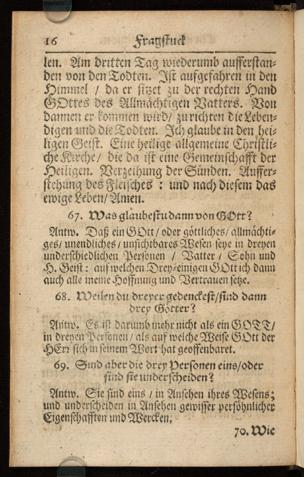 16 Fragstuck
len. Am dritten Tag wiederumb aufferstan-
den von den Todten. Ist aufgefahren in den
Himmel / da er sitzet zu der rechten Hand
GOttes des Allmächtigen Vatters. Von
dannen er kommen wird/ zu richten die Leben-
digen und die Todten. Ich glaube in den hei-
ligen Geist. Eine heilige allgemeine Christli-
che Kirche/ die da ist eine Gemeinschafft der
Heiligen. Verzeihung der Sünden. Auffer-
stehung des Fleisches : und nach diesem das
ewige Leben/ Amen.
67. Was glaubestu dann von GOtt?
Antw. Daß ein GOtt/ oder göttliches/ allmächti-
ges/ unendliches/ unsichtbares Wesen seye in dreyen
underschiedlichen Personen / Vatter / Sohn und
H. Geist : auf welchen Drey/einigen GOtt ich dann
auch alle meine Hoffnung und Vertrauen setze.
68. Weilen du dreyer gedenckest/ sind dann
drey Götter?
Antw. Es ist darumb mehr nicht als ein GOTT/
in dreyen Personen/ als auf welche Weise GOtt der
HErr sich in seinem Wort hat geoffenbaret.
69. Sind aber die drey Personen eins/oder
sind sie underscheiden?
Antw. Sie sind eins / in Ansehen ihres Wesens;
und underscheiden in Ansehen gewisser persöhnlicher
Eigenschafften und Wercken.
70. Wie